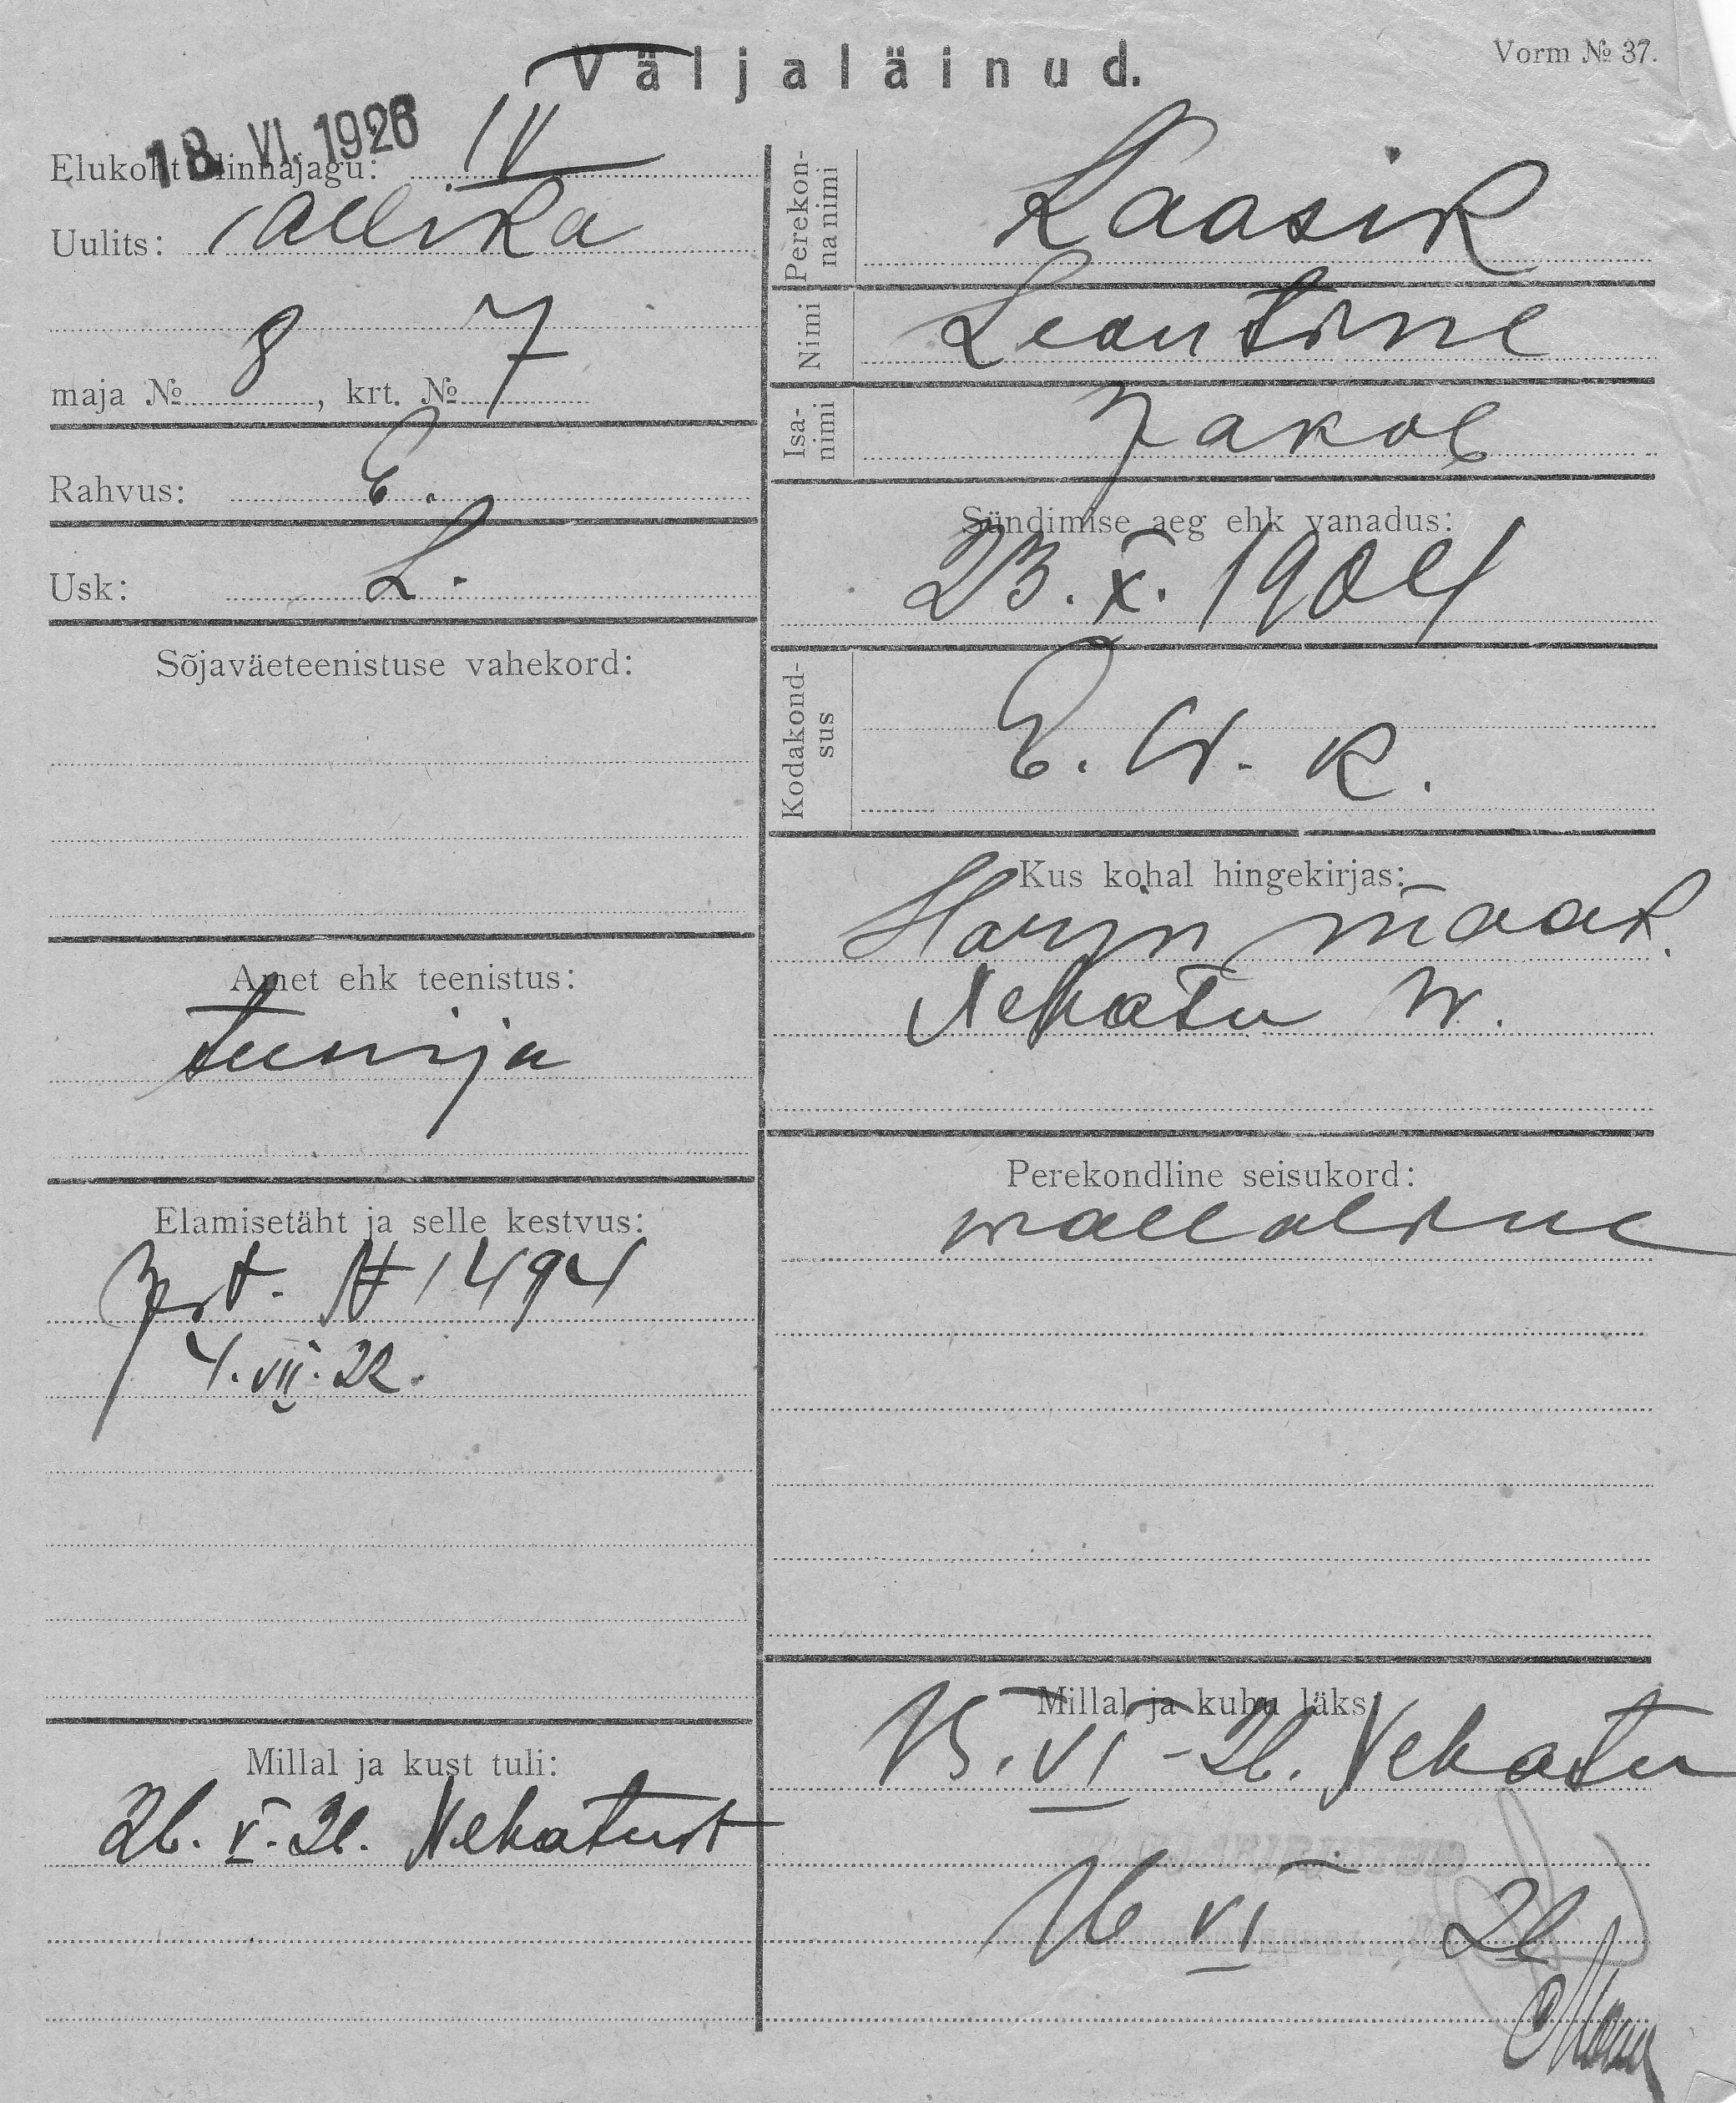 Väljaläinud.
Vorm № 37.
18. VI. 1926
Elukoht linnajagu: IV
Uulits: Allika
maja № 8, krt. № 7
Rahvus: E.
Usk: L.
Sõjaväeteenistuse vahekord:
Amet ehk teenistus:
teenija
Elamisetäht ja selle kestvus:
№ 1494
4. VII. 22.
Millal ja kust tuli:
26. V. 26. Nehatust
Perekonnanimi
Kaasik
Nimi
Leontine
Isanimi
Jakob
Sündimise aeg ehk vanadus:
23. X. 1904
Kodakondsus
E. W. R.
Kus kohal hingekirjas:
Harju maak.
Nehatu w.
Perekondline seisukord:
wallaline
Millal ja kuhu läks:
15. VI - 26. Nehatu
16 VI 26